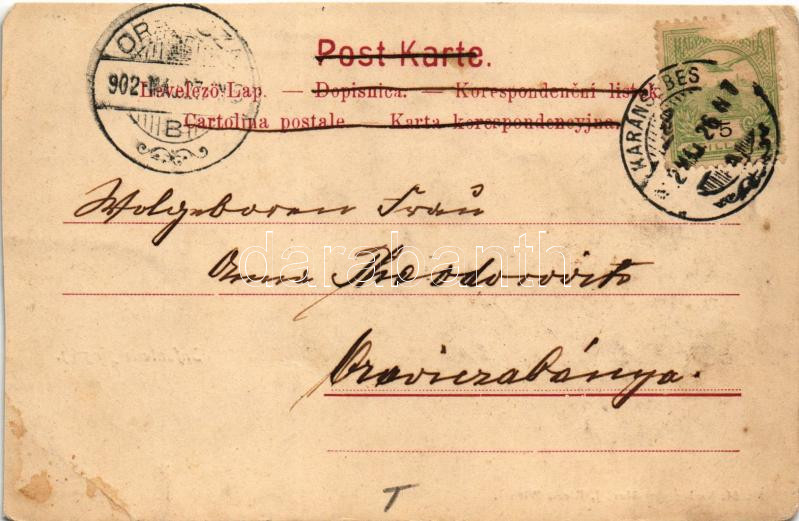 Post Karte.
Levelező-Lap. — Dopisnica. — Korespondenční lístek
Cartolina postale. Karta korespondencyjna.
902
B
MAGYAR
5
KARÁNSEBES
Wolgeboren Frau
Anna Theodorovits
Oraviczabánya.
darabanth
T